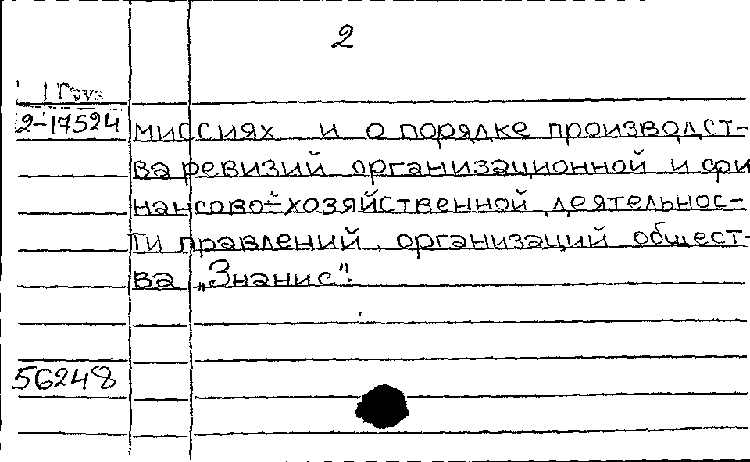 2
Груз
2-17524
миссиях и о порядке производст-
ва ревизий организационной и фи
нансово-хозяйственной деятельнос-
ти правлений организаций общест-
ва „Знание".
56248